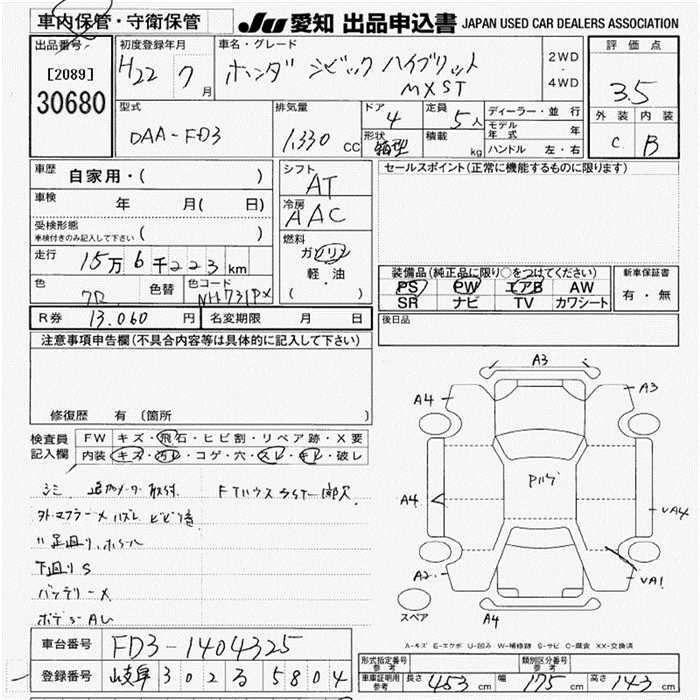 車内保管・守衛保管
JU 愛知 出品申込書 JAPAN USED CAR DEALERS ASSOCIATION
出品番号
[2089]
30680
初度登録年月
H22 7月
車名・グレード
ホンダ シビック ハイブリット
MXST
2WD
・
4WD
評価点
3.5
外装 内装
C B
型式
DAA-FD3
排気量
1,330 CC
ドア
4
定員
5人
形状
箱型
積載
kg
ディーラー・並行
モデル年式 年
ハンドル 左・右
車歴 自家用・( )
車検 年 月( 日)
受検形態
車検付きのみ記入して下さい ( )
走行 15万6千223km
色 色替 色コード
NH731PX
シフト
AT
冷房
AAC
燃料
ガソリン
軽・油
( )
セールスポイント(正常に機能するものに限ります)
装備品(純正品に限り○をつけてください)
PS PW エアB AW
SR ナビ TV カワシート
新車保証書
有・無
R券 13,060 円 名変期限 月 日
後日品
注意事項申告欄(不具合内容等は具体的に記入して下さい)
修復歴 有(箇所 )
検査員記入欄
FW キズ・飛石・ヒビ割・リペア跡・X要
内装 キズ・汚レ・コゲ・穴・スレ・キレ・破レ
シミ 追加メーター取付
外.マフラーメ ハズレ ビビリ音
〃足廻り.ホイール
下廻り S
バッテリーメ
ボデーA
A3
A4 A3
Pルーフ
A4 UA4
A2 UA1
スペア A4
A-キズ E-エクボ U-凹み W-補修跡 S-サビ C-腐食 XX-交換済
車台番号 FD3-1404325
登録番号 岐阜 302 る 5804
形式指定番号 参考 類別区分番号 参考
車庫証明用 参考 長さ 453 cm 幅 175 cm 高さ 143 cm